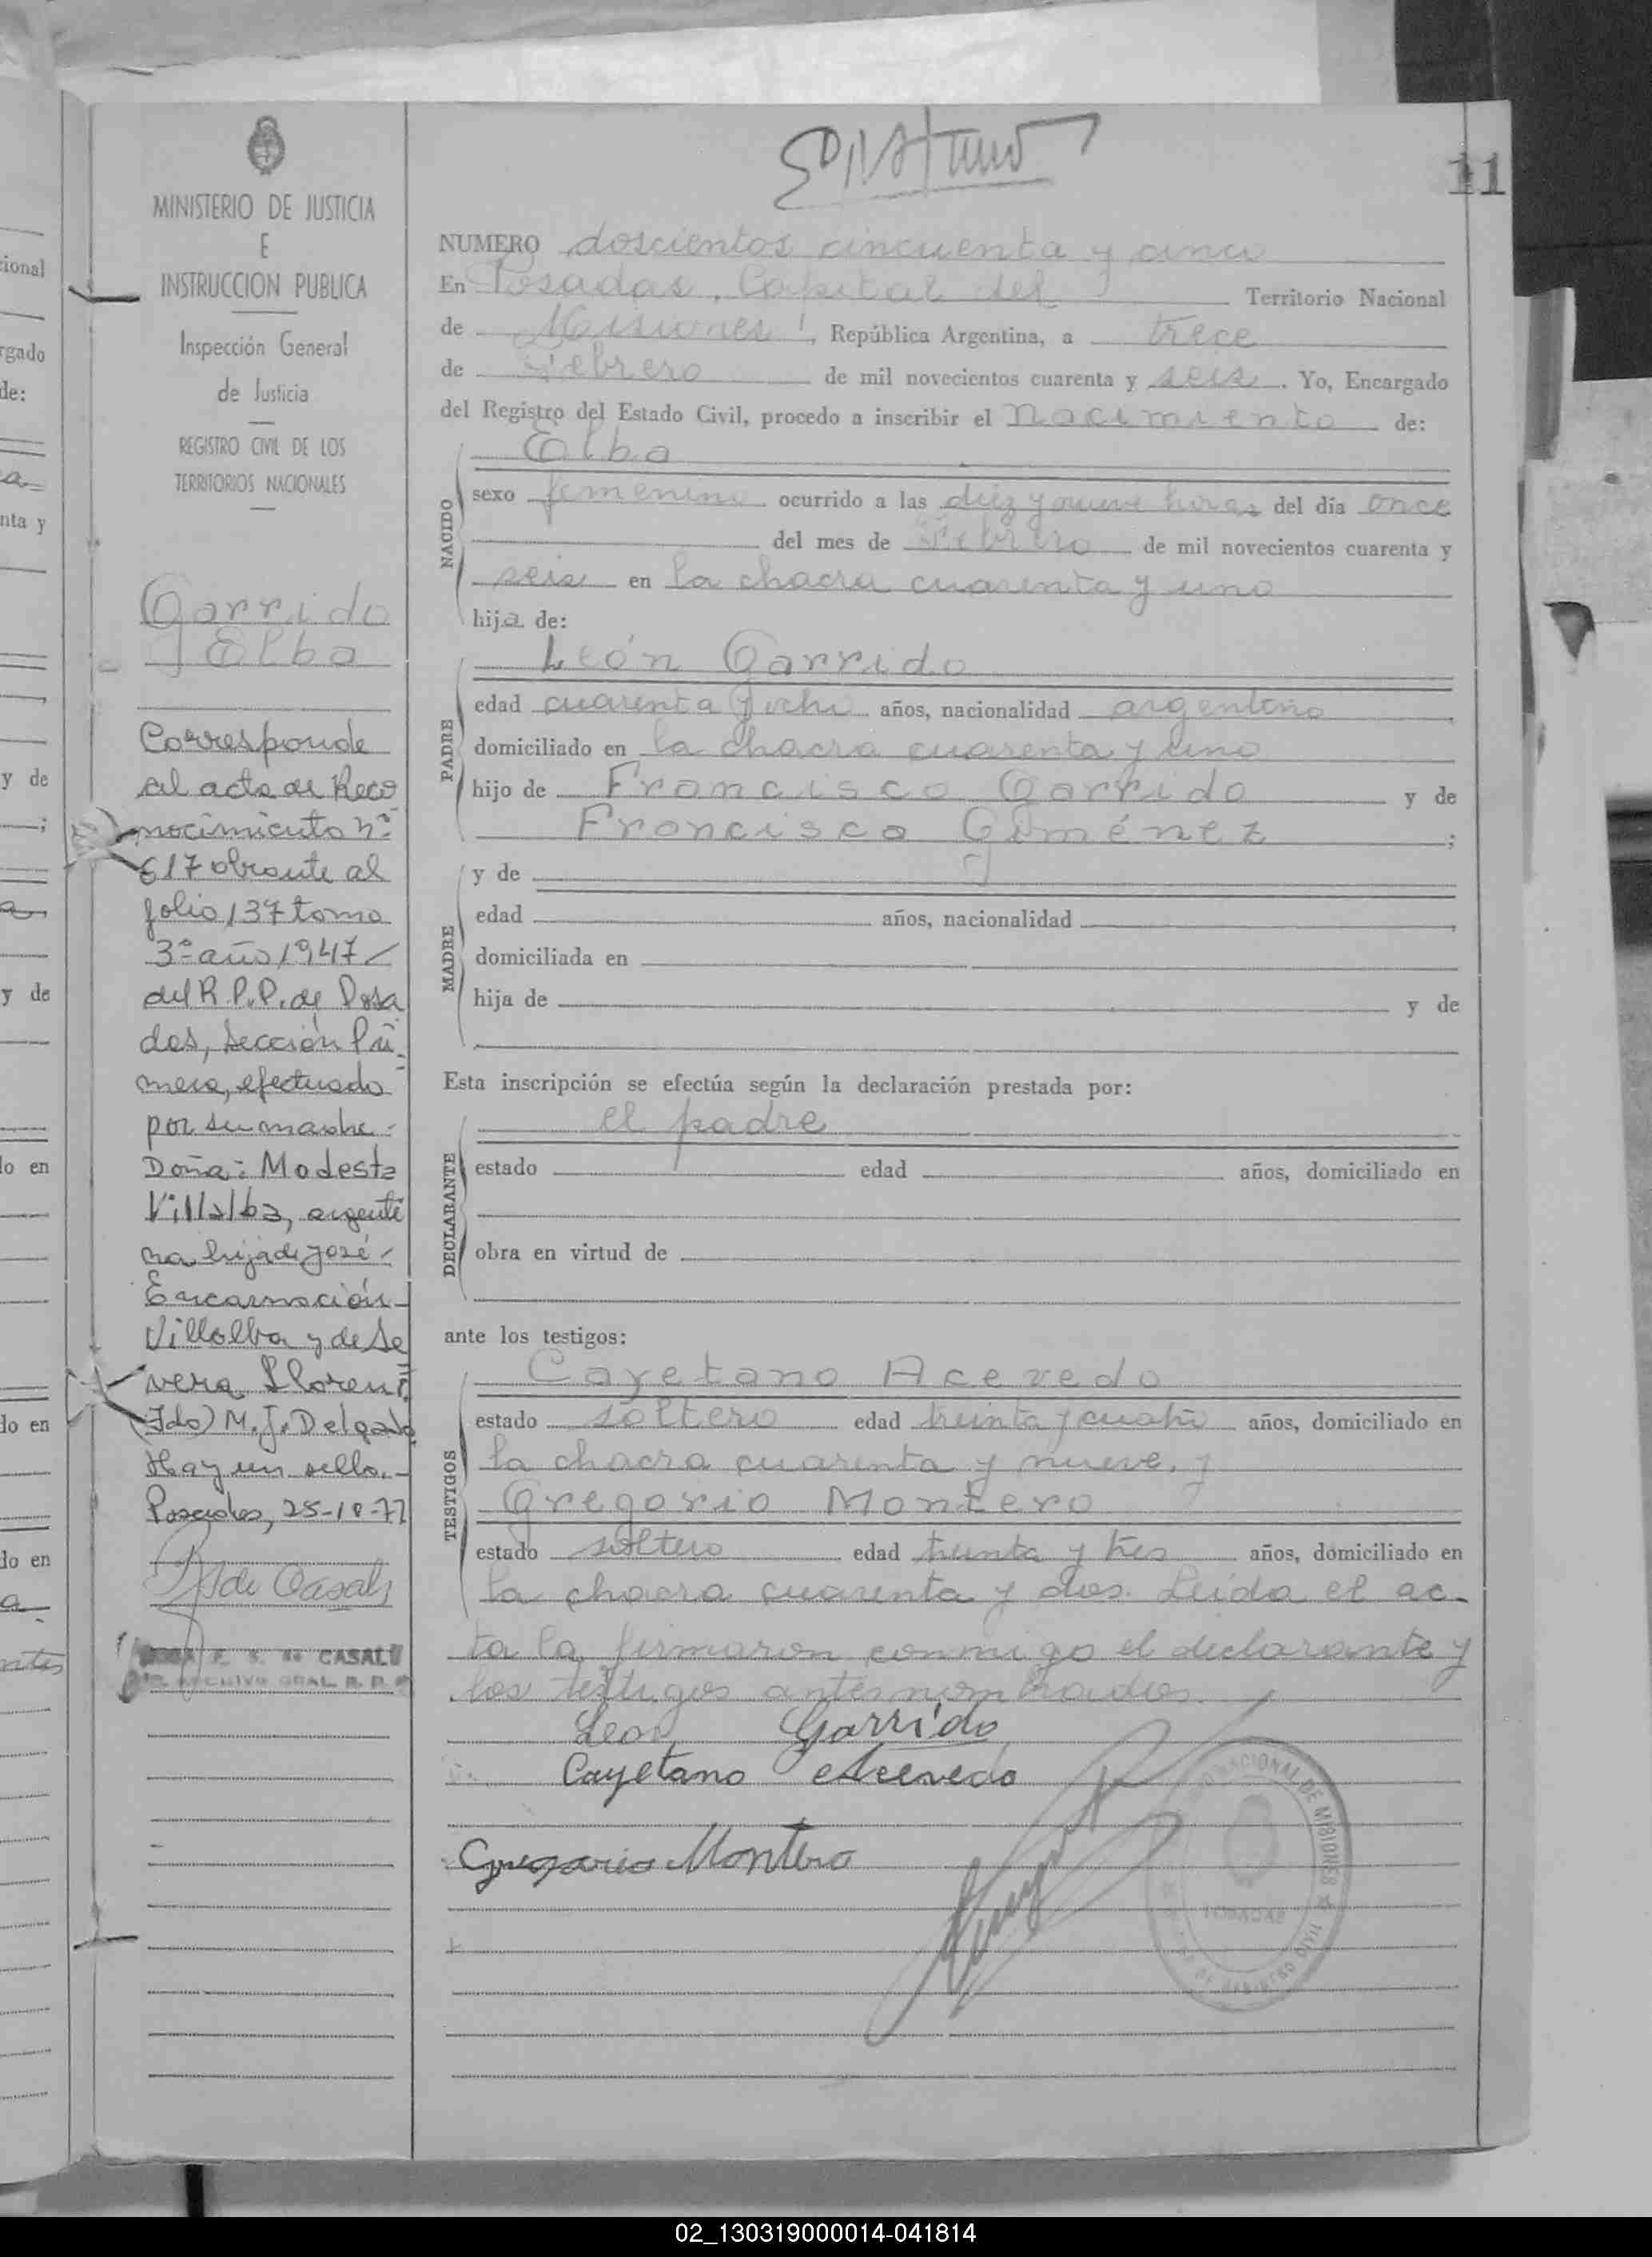 11
MINISTERIO DE JUSTICIA
E
INSTRUCCION PUBLICA
Inspección General
de Justicia
REGISTRO CIVIL DE LOS
TERRITORIOS NACIONALES
Garrido
Elba
Corresponde
al acta de Reco
nocimiento nº
617 obrante al
folio 137 tomo
3º año 1947
del R.P.P. de Posa
das, Sección Pri
mera, efectuado
por su madre
Doña: Modesta
Villalba, argenti
na hija de José
Encarnación
Villalba y de Se
vera Llorent
(Fdo) M. J. Delgado
Hay un sello.
Posadas, 25-10-77
de Casals
de CASALS
ARCHIVO GRAL. R. P.
NUMERO doscientos cincuenta y cinco
En Posadas, Capital del Territorio Nacional
de Misiones, República Argentina, a trece
de Febrero de mil novecientos cuarenta y seis. Yo, Encargado
del Registro del Estado Civil, procedo a inscribir el nacimiento de:
NACIDO
Elba
sexo femenino ocurrido a las diez y nueve horas del día once
del mes de Febrero de mil novecientos cuarenta y
seis en la chacra cuarenta y uno
hija de:
PADRE
León Garrido
edad cuarenta y ocho años, nacionalidad argentino
domiciliado en la chacra cuarenta y uno
hijo de Francisco Garrido y de
Francisca Giménez ;
MADRE
y de
edad años, nacionalidad
domiciliada en
hija de y de
Esta inscripción se efectúa según la declaración prestada por:
DECLARANTE
el padre
estado edad años, domiciliado en
obra en virtud de
ante los testigos:
TESTIGOS
Cayetano Acevedo
estado soltero edad treinta y cuatro años, domiciliado en
la chacra cuarenta y nueve, y
Gregorio Montero
estado soltero edad treinta y tres años, domiciliado en
la chacra cuarenta y dos. Leída el ac-
ta la firmaron conmigo el declarante y
los testigos antes nombrados.
Leon Garrido
Cayetano Acevedo
Gregorio Montero
NACIONAL DE MISIONES
POSADAS
02_130319000014-041814